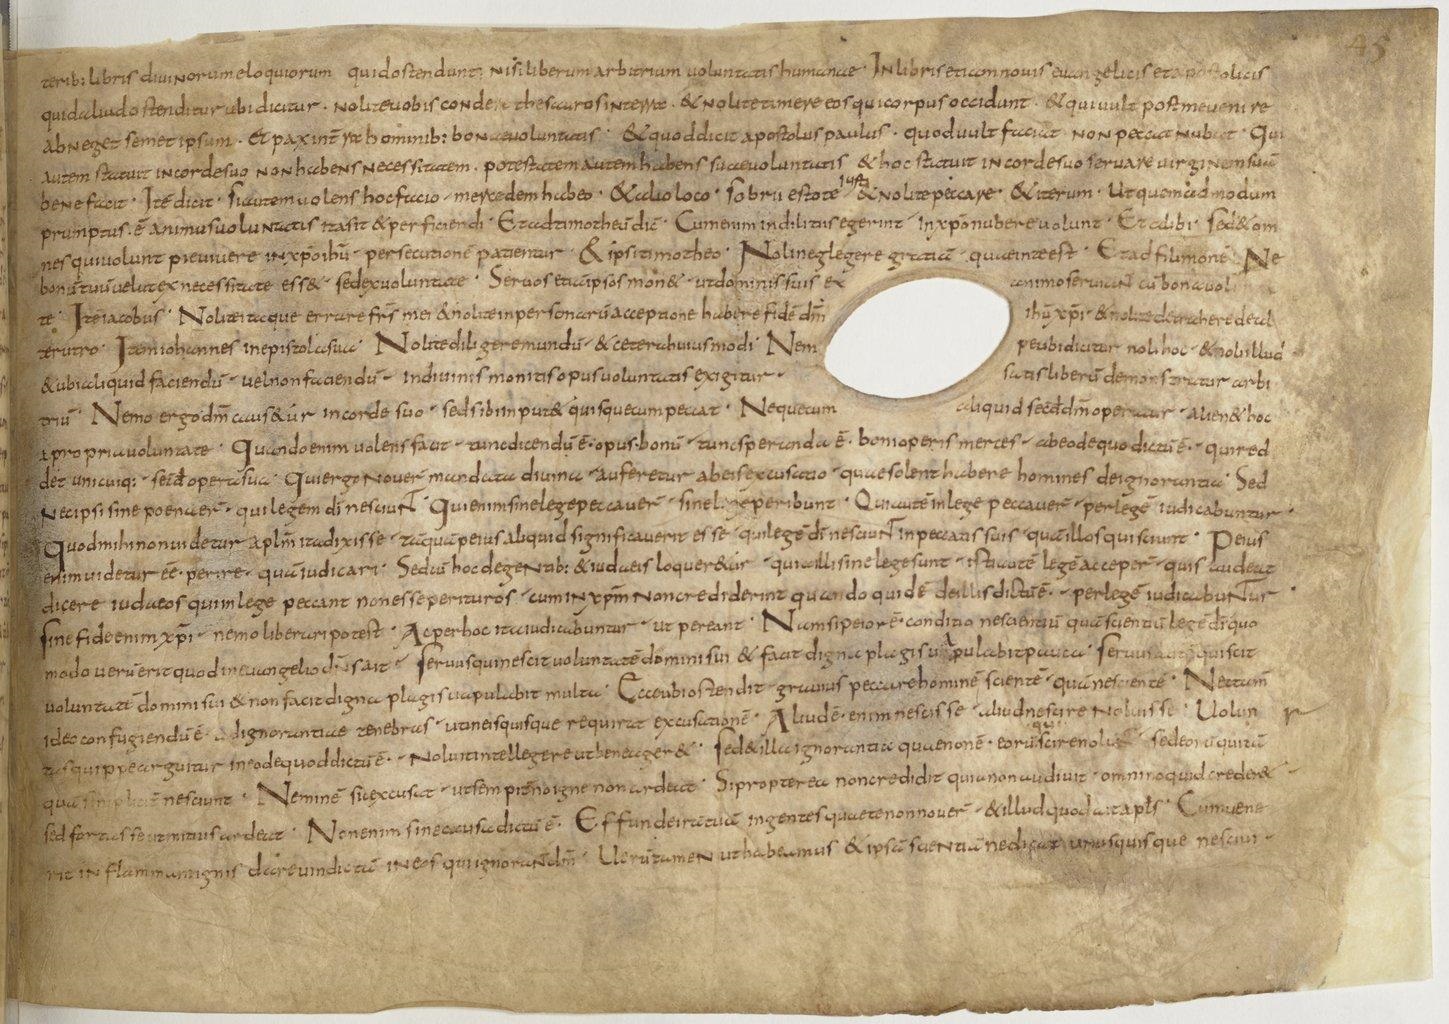 45
terib: libris divinorum eloquiorum quid ostendunt; nisi liberum arbitrium voluntatis humanae · In libris etiam novis evangelicis et apostolicis
quid aliud ostenditur ubi dicitur · nolite vobis condere thesauros in terra · & nolite timere eos qui corpus occidunt · & qui vult post me venire
abneget semet ipsum · Et pax in terra hominib: bonae voluntatis · & quod dicit apostolus paulus · quod vult faciat non peccat nubat · Qui
autem statuit in corde suo non habens necessitatem · potestatem autem habens suae voluntatis & hoc statuit in corde suo servare virginem suā
bene facit · Itē dicit · si autem volens hoc facio mercedem habeo · & alio loco · sobrii estote iuste & nolite peccare · & iterum · Ut quemadmodum
pruniptus · ē animus voluntatis ita sit & perficiendi · Et ad timotheū dic̄ · Cum enim in dilitiis egerint in xp̄o nubere volunt · Et alibi · sed & om
nes qui volunt pie vivere in xp̄o ihū persecutionē patientur · & ipsi timotheo · Noli neglegere gratiā quae in te est · Et ad filimonē · Ne
bonū tuū velut ex necessitate ess& · sed ex voluntate · Servos etiā ipsos mon& · ut dominis suis ex animo serviant cū bona voli
te · Itē iacobus · Nolite itaque errare fr̄s mei & nolite in personarū acceptione habere fidē dn̄i ihū xp̄i · & nolite detrahere de al
terutro · Item iohannes in epistola sua · Nolite diligere mundū · & cetera huius modi · Nem pe ubi dicitur noli hoc & noli illud
& ubi aliquid faciendū vel non faciendū in divinis monitis opus voluntatis exigitur · satis liberū demonstratur arbi
triū · Nemo ergo dm̄ caus&ur in corde suo · sed sibi input& quisque cum peccat · Neque cum aliquid secd̄ dm̄ operatur alien& hoc
a propria voluntate · Quando enim volens facit tunc dicendū ē · opus · bonū tunc speranda ē · boni operis merces ab eo de quo dictū ē · qui red
det unicuiq: secd̄ opera sua · Qui ergo nover̄ mandata divina auferetur ab eis excusatio quae solent habere homines de ignorantia · Sed
nec ipsi sine poena er̄ · qui legem dī nesciunt · Qui enim sine lege peccaver̄ sine lege peribunt · Qui autē in lege peccaver̄ per legē iudicabuntur ·
Quod mihi non videtur apl̄m ita dixisse tāquā peius aliquid significaverit esse qui legē dī nesciunt in peccatis suis quā illos qui sciunt · Peius
enim videtur eē · perire quā iudicari · Sed cū hoc de gentib: & iudaeis loquer&ur quia illi sine lege sunt isti autē legē acceper̄ quis audeat
dicere iudaeos qui in lege peccant non esse perituros cum in xp̄m non crediderint quando quidē de illis dictū ē · per legē iudicabuntur ·
sine fide enim xp̄i nemo liberari potest · Ac per hoc ita iudicabuntur ut pereant · Nam si peior ē · conditio nescientiū quā scientiū legē dī quo
modo verū erit quod in evangelio dn̄s ait · servus qui nescit voluntatē domini sui & facit digna plagis vapulabit pauca · servus autē qui scit
voluntatē domini sui & non facit digna plagis vapulabit multa · Ecce ubi ostendit gravius peccare hominē scientē quā nescientē · Nec tam̄
ideo confugiendū ē · ad ignorantiae tenebras ut in eis quisque requirat excusationē · Aliud ē · enim nescisse aliud nescire noluisse · Volun
tas quippe arguitur in eo de quo dictū ē · Noluit intellegere ut bene ager& · sed & illa ignorantia quae non ē · eorū qui scire nolunt sed eorū qui tā
quā simpliciē nesciunt · Neminē sic excusat ut sempit̄no igne non ardeat · Si propterea non credidit quia non audivit omnino quid creder&
sed fortasse ut mitius ardeat · Non enim sine causa dictū ē · Effunde irā tuā in gentes quae te non nover̄ & illud quod ait apl̄s · Cum vene
rit in flamma ignis dare vindictā in eos qui ignorant dm̄ · Verū tamen ut habeamus & ipsā scientiā ne dicat unusquisque nescivi